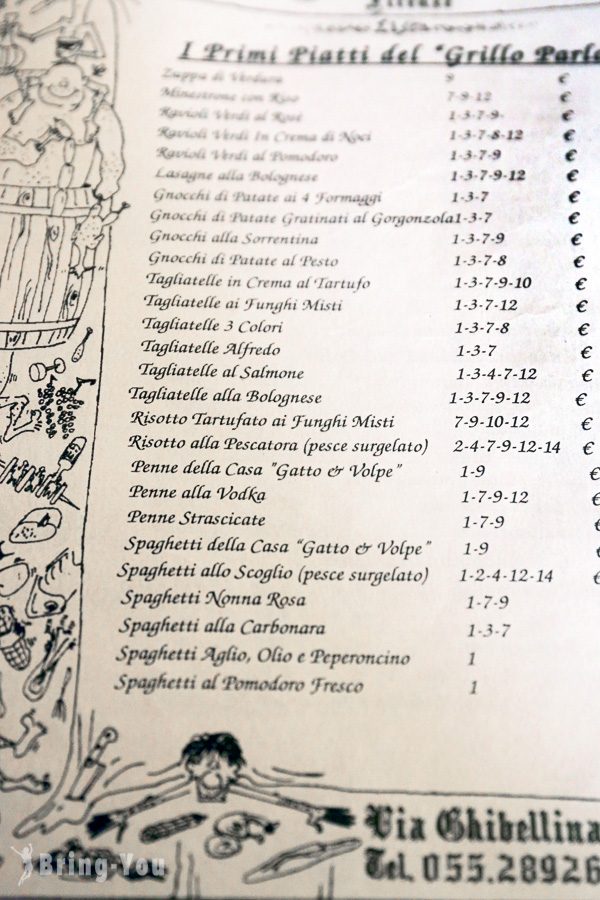 Firenze
I Primi Piatti del "Grillo
Zuppa di Verdura 9 €
Minestrone con Riso 7-9-12 €
Ravioli Verdi al Rosé 1-3-7-9- €
Ravioli Verdi In Crema di Noci 1-3-7-8-12 €
Ravioli Verdi al Pomodoro 1-3-7-9 €
Lasagne alla Bolognese 1-3-7-9-12 €
Gnocchi di Patate ai 4 Formaggi 1-3-7 €
Gnocchi di Patate Gratinati al Gorgonzola1-3-7 €
Gnocchi alla Sorrentina 1-3-7-9 €
Gnocchi di Patate al Pesto 1-3-7-8 €
Tagliatelle in Crema al Tartufo 1-3-7-9-10 €
Tagliatelle ai Funghi Misti 1-3-7-12 €
Tagliatelle 3 Colori 1-3-7-8 €
Tagliatelle Alfredo 1-3-7 €
Tagliatelle al Salmone 1-3-4-7-12 €
Tagliatelle alla Bolognese 1-3-7-9-12 €
Risotto Tartufato ai Funghi Misti 7-9-10-12 €
Risotto alla Pescatora (pesce surgelato) 2-4-7-9-12-14 €
Penne della Casa "Gatto & Volpe" 1-9 €
Penne alla Vodka 1-7-9-12 €
Penne Strascicate 1-7-9 €
Spaghetti della Casa "Gatto & Volpe" 1-9 €
Spaghetti allo Scoglio (pesce surgelato) 1-2-4-12-14 €
Spaghetti Nonna Rosa 1-7-9
Spaghetti alla Carbonara 1-3-7
Spaghetti Aglio, Olio e Peperoncino 1
Spaghetti al Pomodoro Fresco 1
Via Ghibellina
Tel. 055.28926
Bring-You